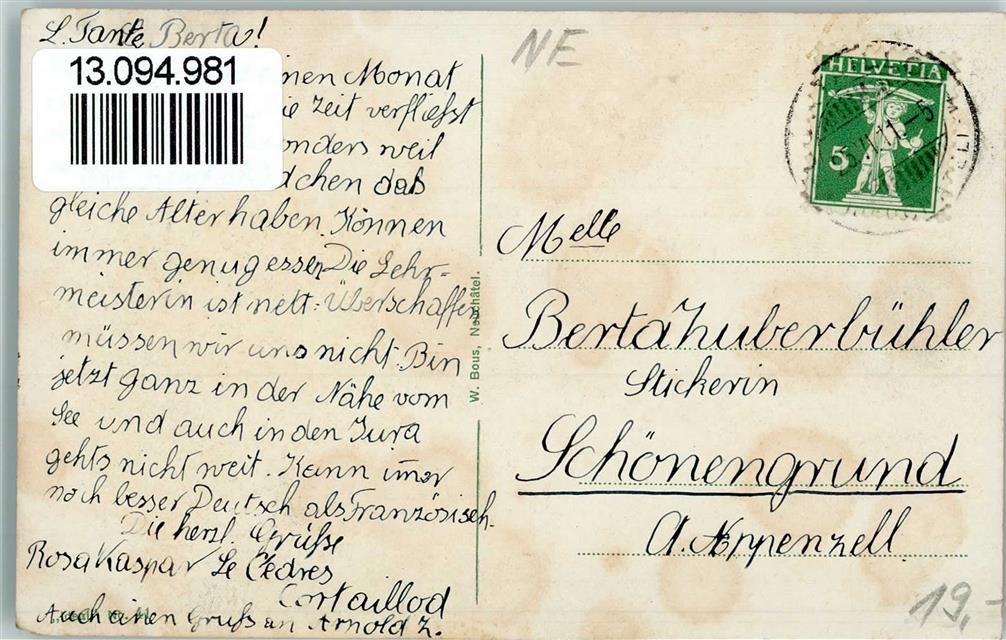 L. Tante Berta!
13.094.981
nen Monat
ie Zeit verfliesst
onders weil
dchen das
gleiche Alter haben. Können
immer genug essen. Die Lehr-
meisterin ist nett. Überschaffen
müssen wir uns nicht. Bin
jetzt ganz in der Nähe vom
See und auch in den Jura
gehts nicht weit. Kann imer
noch besser Deutsch als Französisch.
Die herzl. Grüsse
Rosa Kaspar Le Cèdres
Cortaillod
Auch einen Gruss an Arnold Z.
W. Bous, Neuchâtel.
NE
HELVETIA
5
Melle
Berta Huberbühler
Stickerin
Schönengrund
A. Appenzell
19,-